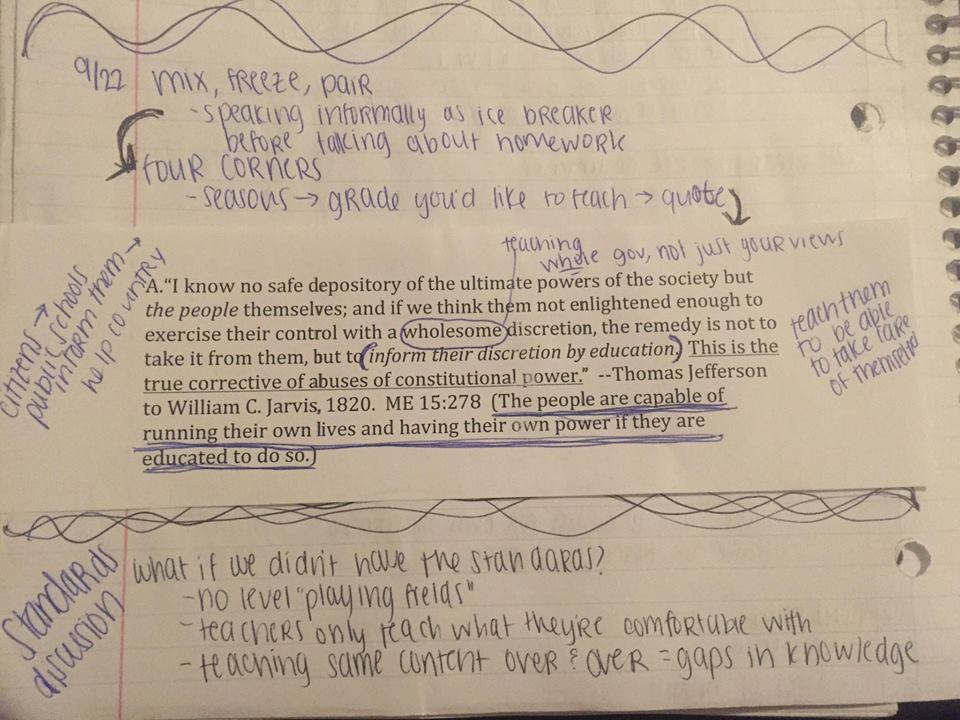 9/22 mix, freeze, pair
- speaking informally as ice breaker
before talking about homework
four corners
- seasons → grade you'd like to teach → quote
teaching
whole gov, not just your views
citizens →
public schools
inform them →
help country
A. "I know no safe depository of the ultimate powers of the society but
the people themselves; and if we think them not enlightened enough to
exercise their control with a wholesome discretion, the remedy is not to
take it from them, but to (inform their discretion by education.) This is the
true corrective of abuses of constitutional power." --Thomas Jefferson
to William C. Jarvis, 1820. ME 15:278 (The people are capable of
running their own lives and having their own power if they are
educated to do so.)
teach them
to be able
to take care
of themself
Standards
discussion
what if we didn't have the standards?
- no level "playing fields"
- teachers only teach what they're comfortable with
- teaching same content over & over = gaps in knowledge